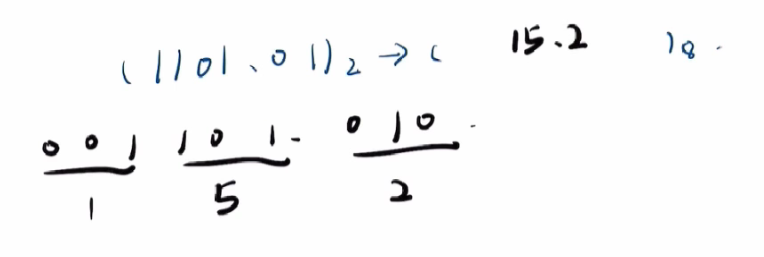 (1101.01)₂ → ( 15.2 )₈.
001 101. 010
1 5 2